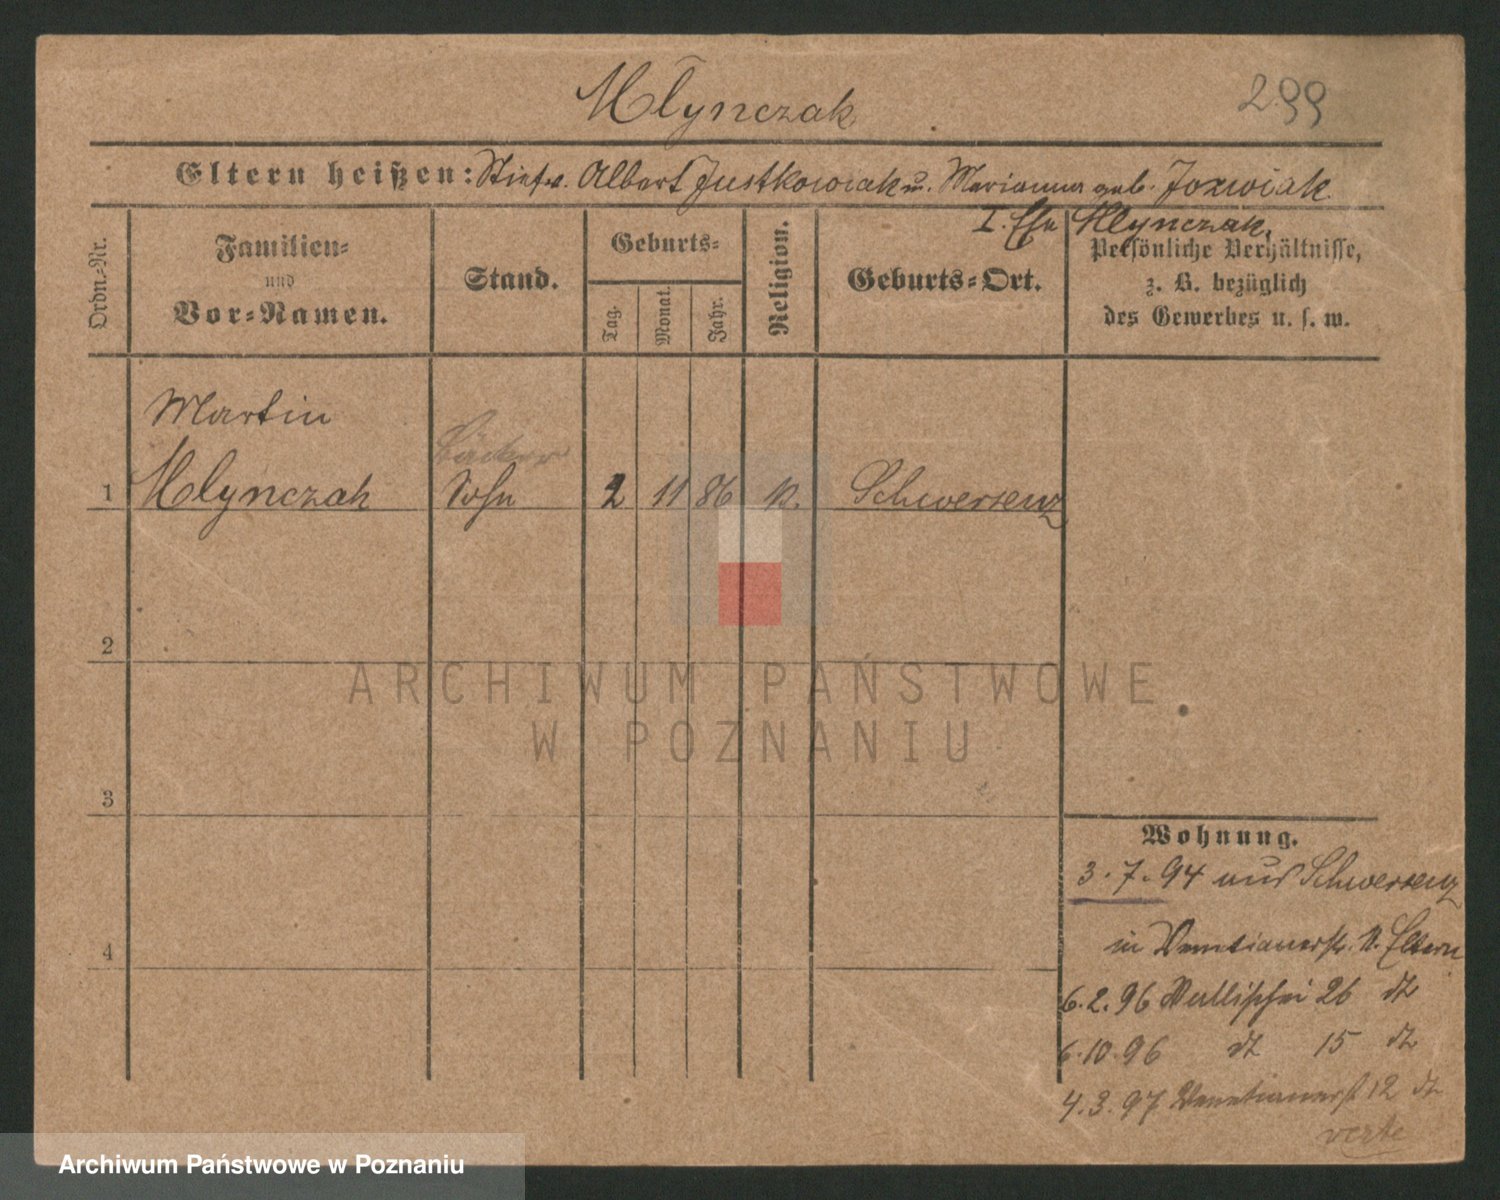 Młynczak
299
Eltern heißen: Stiefv. Albert Justkowiak u. Marianna geb. Jozwiak
I. Ehe Mlynczak.
Ordn.-Nr.
Familien-
und
Vor-Namen.
Stand.
Geburts-
Tag.
Monat.
Jahr.
Religion.
Geburts-Ort.
Persönliche Verhältnisse,
z. B. bezüglich
des Gewerbes u. s. w.
Martin
1 Mlynczak
Bäcker
Sohn 2 11 86 k. Schwersenz
2
3
4
ARCHIWUM PAŃSTWOWE
W POZNANIU
Wohnung.
3.7.94 aus Schwersenz
in Venetianerstr. Eltern
6.2.96 Wallischei 26 dt
6.10.96 dt 15 dt
4.3.97 Venetianerst 12 dt
verte
Archiwum Państwowe w Poznaniu